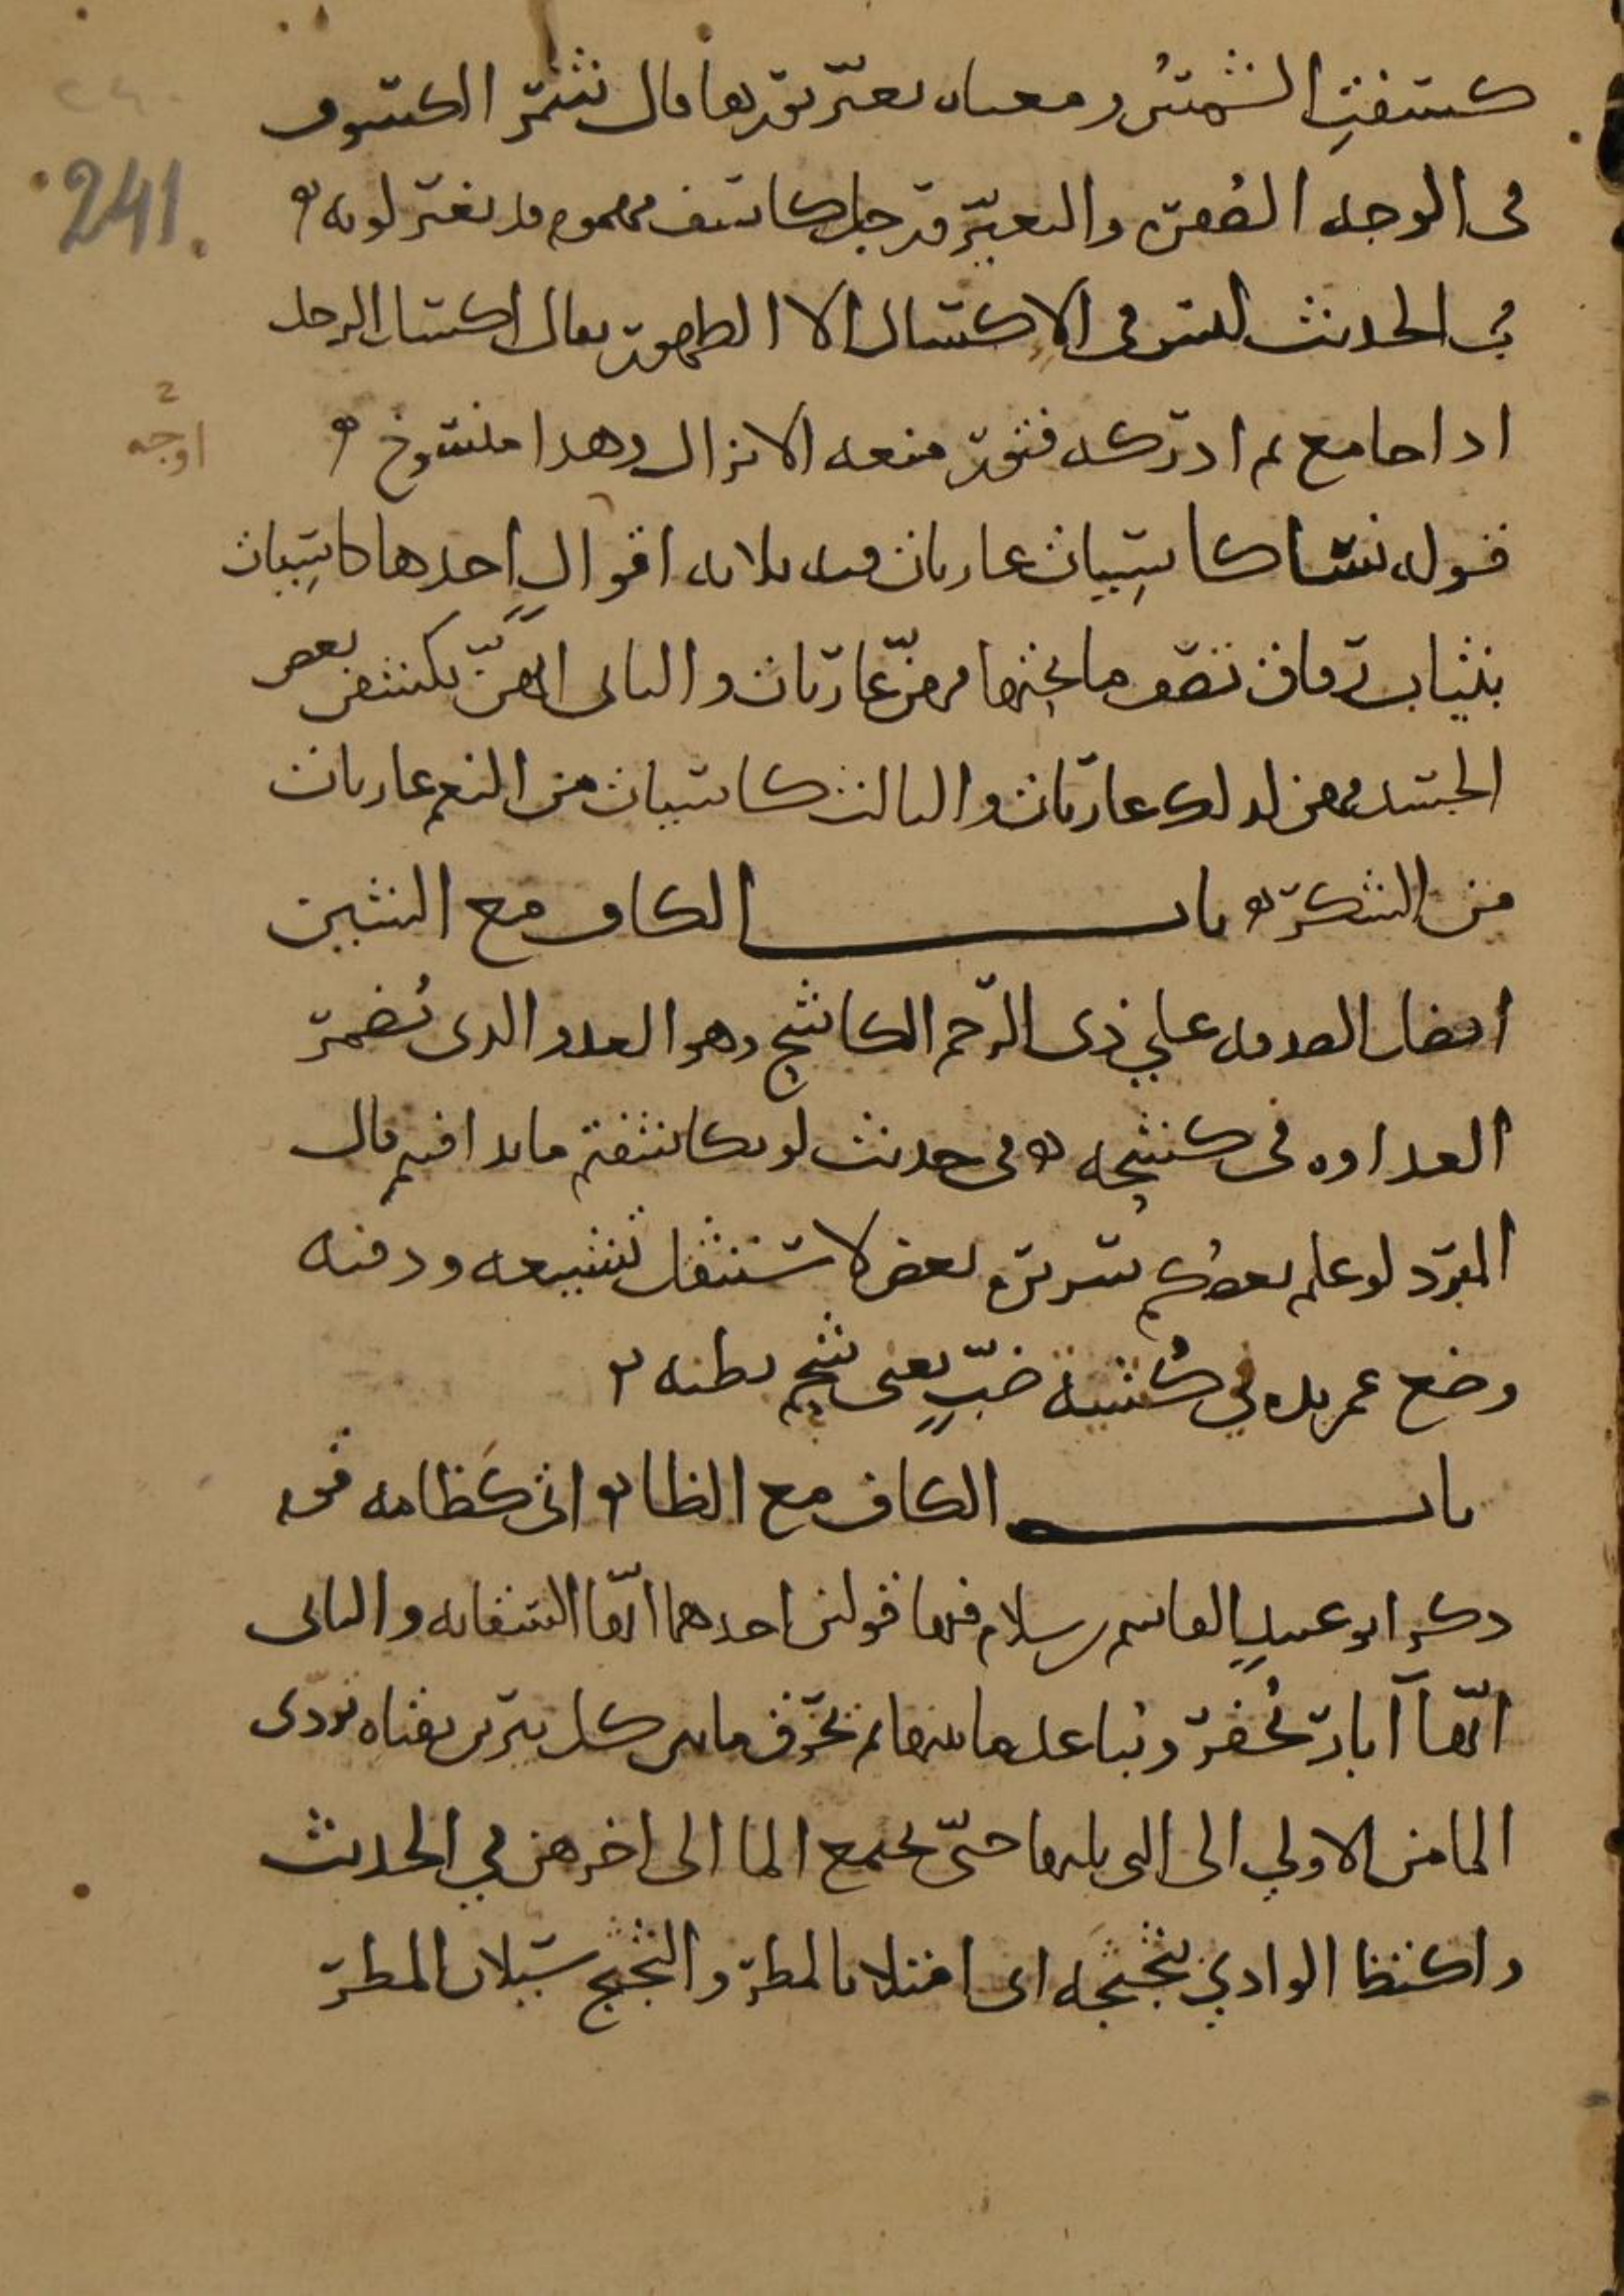 كسفت الشمس ومعناه تغير نورها قال شمر الكسوف
241.
في الوجه الصفرة والتغير ورجل كاسف مهموم قد تغير لونه
في الحديث ليس في الإكسال الا الطهور يقال اكسل الرجل
اذا جامع ثم ادركه فتور منعه الانزال وهذا منسوخ
اوجه
قوله نسا كاسيات عاريات فيه ثلاثه اقوال احدها كاسيات
بثياب رقاق تصف ما تحتها فهن عاريات والثاني انهن يكشفن بعض
الجسد فهن لذلك عاريات والثالث كاسيات من النعم عاريات
من الشكر باب الكاف مع الشين
افضل الصدقه علي ذى الرحم الكاشح وهو العدو الذى يضمر
العداوه في كشحه في حديث لو تكاشفتم ما تدافنتم قال
المبرد لو علم بعضكم سريرة بعض لاستثقل تشييعه ودفنه
وضع عمر يده في كُشيه ضبٍّ يعنى شحم بطنه
باب الكاف مع الظا اتى كظامه قوم
ذكر ابو عبيد القاسم بن سلام فيها قولين احدهما انها السقايه والثاني
انها آبار تحفر ويباعد ما بينها ثم يخرق ما بين كل بئرين بقناه تودى
الما من الاولي الى التى يليها حتى يجتمع الما الى اخرهن في الحديث
واكتظ الوادي بثجيجه اى امتلا بالمطر والثجيج سيلان المطر